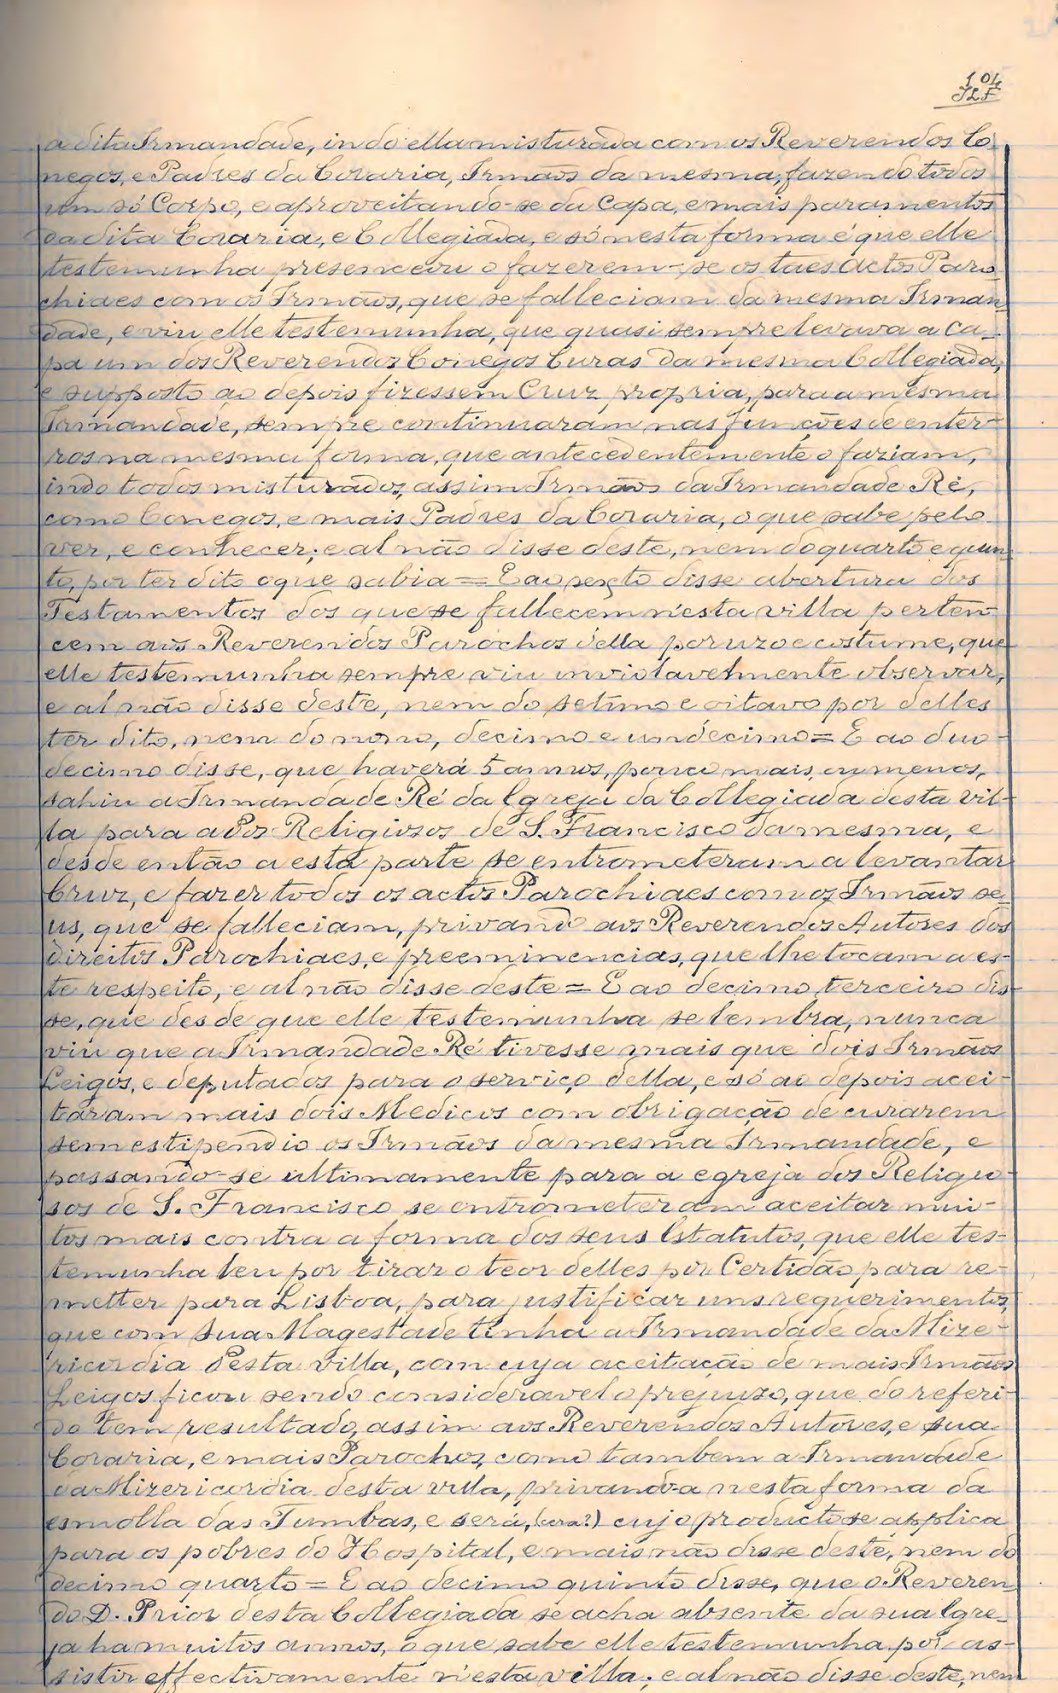 104
JLF
a dita Irmandade, indo ella misturada com os Reverendos Co
negos, e Padres da Coraria, Irmãos da mesma, fazendo todos
um só Corpo, e aproveitando-se da Capa, e mais paramentos
da dita Coraria, e Collegiada, e só nesta forma é que elle
testemunha presenceou o fazerem-se os taes actos Paro
chiaes com os Irmãos, que se falleciam da mesma Irman
dade, e viu elle testemunha, que quasi sempre levava a Ca-
pa um dos Reverendos Conegos Curas da mesma Collegiada,
e supposto ao depois fizessem Cruz propria, para a mesma
Irmandade, sempre continuaram nas funções de enter-
ros na mesma forma, que antecedentemente o faziam,
indo todos misturados, assim Irmãos da Irmandade Ré,
como Conegos, e mais Padres da Coraria, o que sabe pelo
ver, e conhecer; e al não disse deste, nem do quarto e quin
to, por ter dito o que sabia = E ao sexto disse abertura dos
Testamentos dos que se fallecem n'esta villa perten
cem aos Reverendos Parochos della por uzo e costume, que
elle testemunha sempre viu inviolavelmente observar,
e al não disse deste, nem do setimo e oitavo por delles
ter dito, nem do nono, decimo e undécimo = E ao duo-
decimo disse, que haverá 5 annos, pouco mais, ou menos,
sahiu a Irmandade Ré da Igreja da Collegiada desta vil-
la para a dos Religiosos de S. Francisco da mesma, e
desde então a esta parte se entrometeram a levantar
Cruz, e fazer todos os actos Parochiaes com os Irmãos se
us, que se falleciam, privando aos Reverendos Autores dos
direitos Parochiaes, e preeminencias, que lhe tocam a es-
te respeito, e al não disse deste = E ao decimo terceiro dis
se, que desde que elle testemunha se lembra, nunca
viu que a Irmandade Ré tivesse mais que dois Irmãos
Leigos, e deputados para o serviço della, e só ao depois acei-
taram mais dois Medicos com obrigação de curarem
sem estipendio os Irmãos da mesma Irmandade, e
passando-se ultimamente para a egreja dos Religio-
sos de S. Francisco se entrometeram aceitar mui-
tos mais contra a forma dos seus Estatutos, que elle tes-
temunha leu por tirar o teor delles por Certidão para re-
metter para Lisboa, para justificar uns requerimentos,
que com Sua Magestade tinha a Irmandade da Mize-
ricordia desta villa, com cuja aceitação de mais Irmãos
Leigos ficou sendo consideravel o prejuizo, que do referi-
do tem resultado, assim aos Reverendos Autores, e sua
Coraria, e mais Parochos, como tambem a Irmandade
da Mizericordia desta villa, privando-a nesta forma da
esmolla das Tumbas, e será, (cera?) cujo producto se applica
para os pobres do Hospital, e mais não disse deste, nem do
decimo quarto = E ao decimo quinto disse, que o Reveren
do D. Prior desta Collegiada se acha absente da sua Igre-
ja ha muitos annos, o que sabe elle testemunha por as-
sistir effectivamente n'esta villa; e al não disse deste, nem